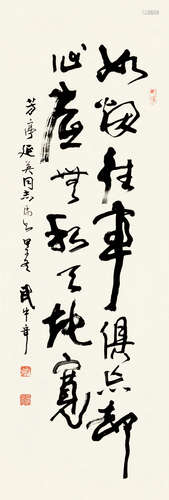 如烟往事俱忘却
心底無私天地寬
芳亭延英同志 甲子冬 武中奇